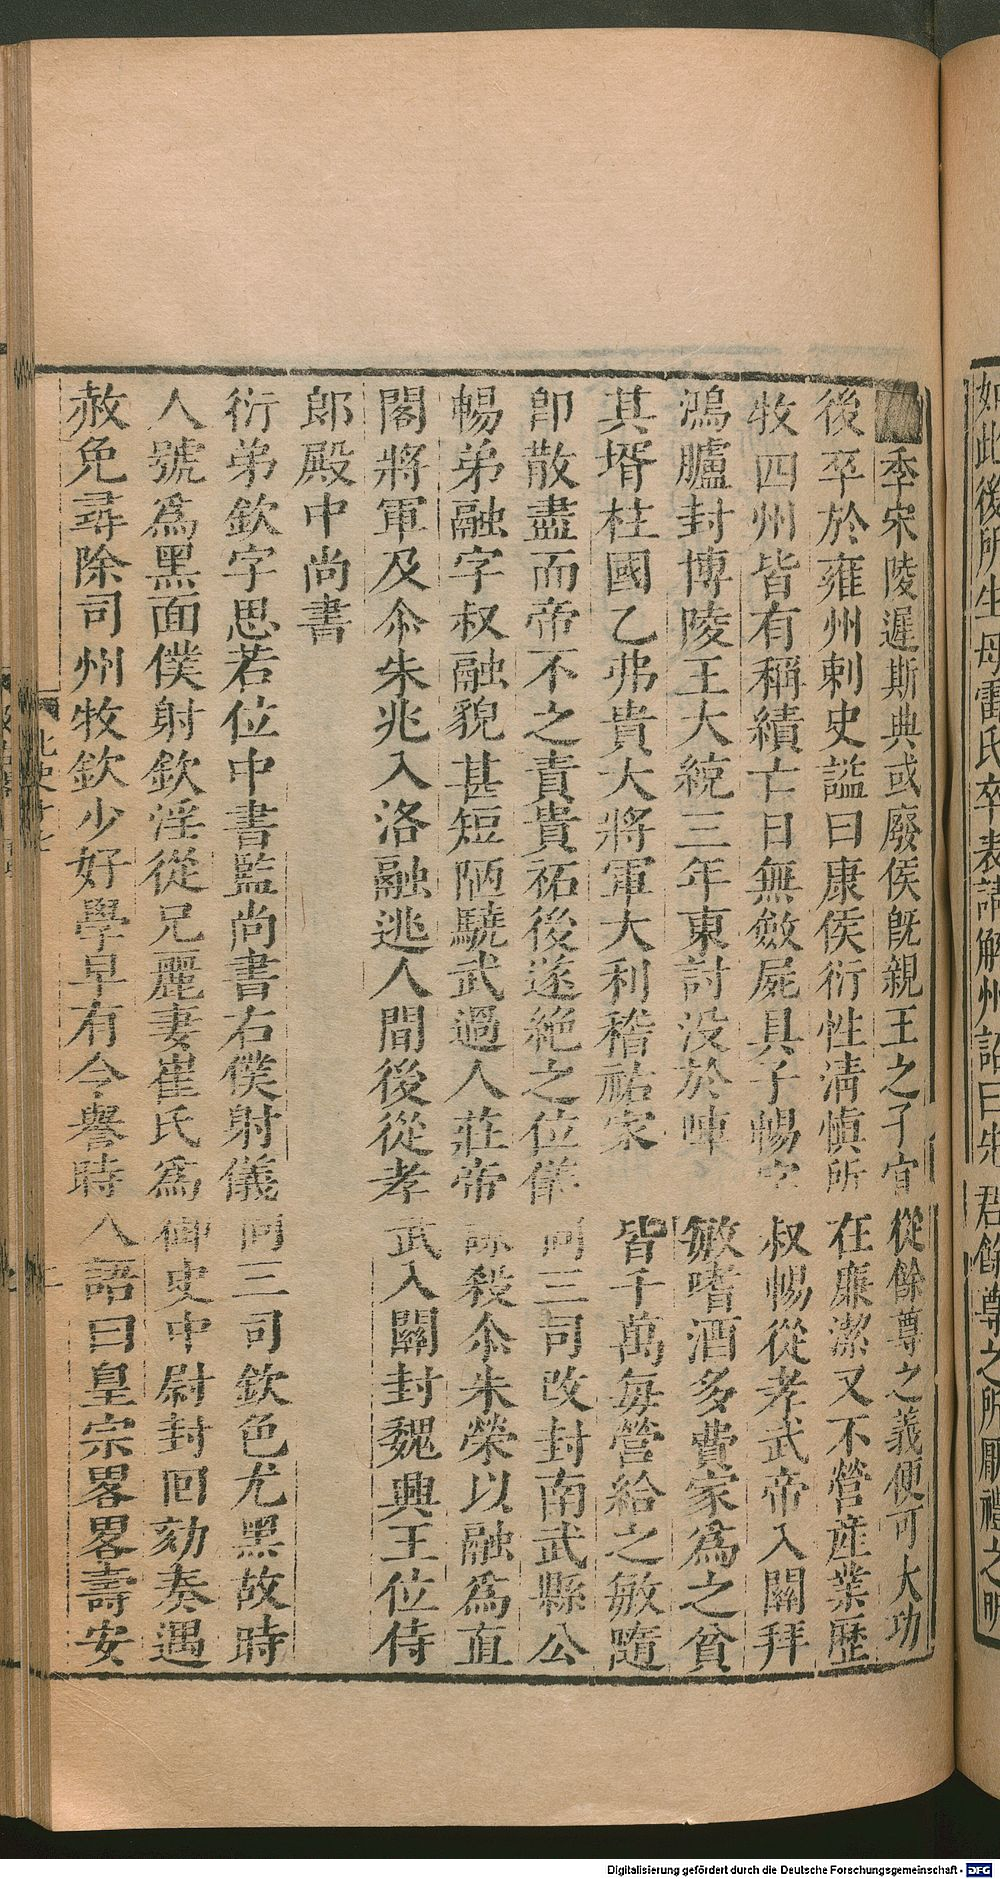 如此後所生母雷氏卒表請解州詔曰先君餘尊之所厭禮之明
季宋陵遲斯典或廢侯旣親王之子宜從餘尊之義便可大功
後卒於雍州刺史謚曰康侯衍性淸愼所在廉潔又不營産業歷
牧四州皆有稱績亡日無斂屍具子暢字叔暢從孝武帝入關拜
鴻臚封博陵王大統三年東討没於陣敏嗜酒多費家爲之貧
其壻柱國乙弗貴大將軍大利稽祐家皆千萬每營給之敏隨
卽散盡而帝不之責貴祏後遂絶之位儀同三司改封南武縣公
暢弟融字叔融貌甚短陋驍武過人莊帝謀殺尒朱榮以融爲直
閤將軍及尒朱兆入洛融逃人間後從孝武入關封魏興王位侍
郎殿中尚書
衍弟欽字思若位中書監尚書右僕射儀同三司欽色尤黑故時
人號爲黑面僕射欽淫從兄麗妻崔氏爲御史中尉封回劾奏遇
赦免尋除司州牧欽少好學早有令譽時人語曰皇宗畧畧壽安
北史十七
Digitalisierung gefördert durch die Deutsche Forschungsgemeinschaft - DFG